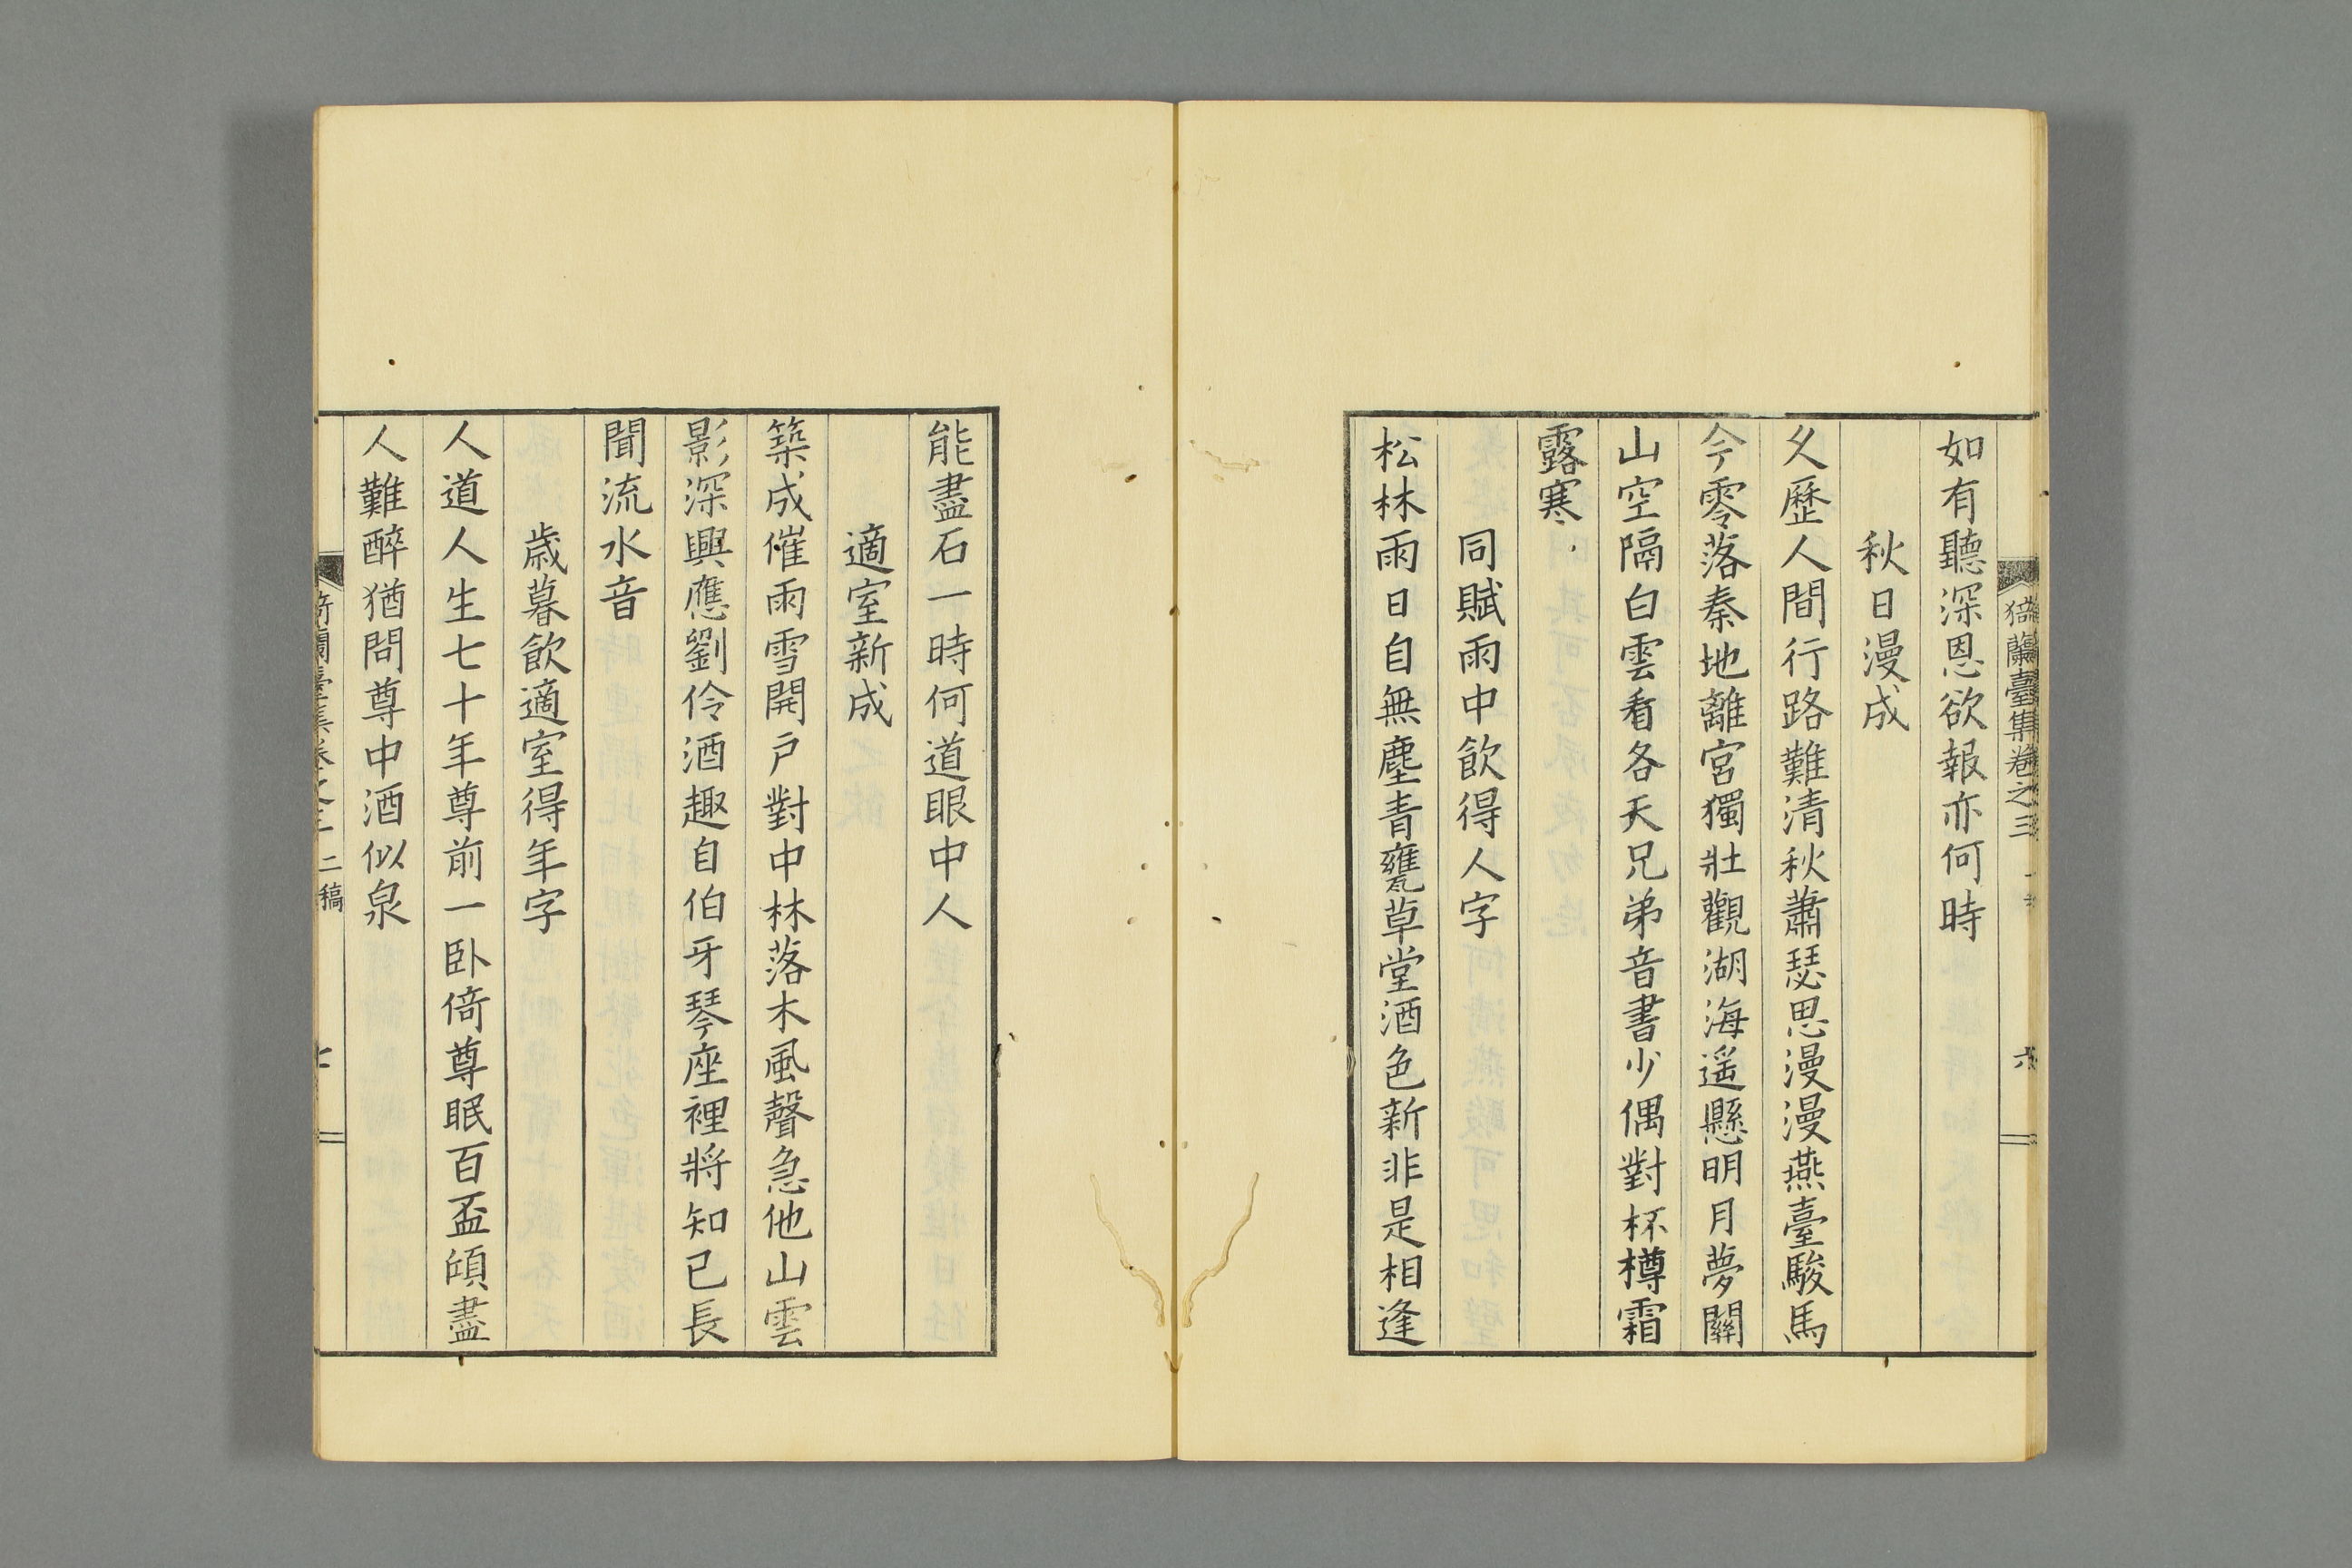 猗蘭臺集卷之三
六
如有聽深恩欲報亦何時
秋日漫成
久歷人間行路難清秋蕭瑟思漫漫燕臺駿馬
今零落秦地離宮獨壯觀湖海遥懸明月夢關
山空隔白雲看各天兄弟音書少偶對杯樽霜
露寒
同賦雨中飲得人字
松林雨日自無塵青甕草堂酒色新非是相逢
能盡石一時何道眼中人
適室新成
築成催雨雪開戸對中林落木風聲急他山雲
影深興應劉伶酒趣自伯牙琴座裡將知已長
聞流水音
歳暮飲適室得年字
人道人生七十年尊前一卧倚尊眠百盃傾盡
人難醉猶問尊中酒似泉
猗蘭臺集卷之三 二稿
七